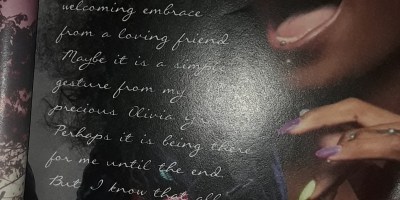 welcoming embrace
from a loving friend
Maybe it is a simple
gesture from my
precious Olivia
Perhaps it is being there
for me until the end
But I know that all